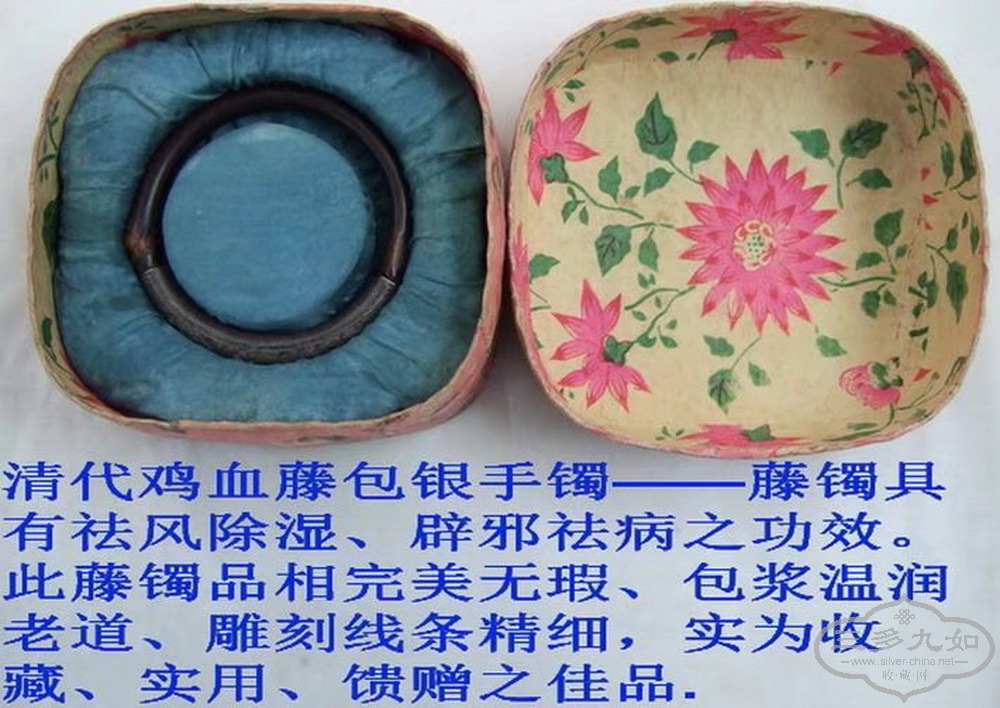 清代鸡血藤包银手镯——藤镯具
有祛风除湿、辟邪祛病之功效。
此藤镯品相完美无瑕、包浆温润
老道、雕刻线条精细，实为收
藏、实用、馈赠之佳品.
多九如
—www.silver-china.net—
收·藏·网